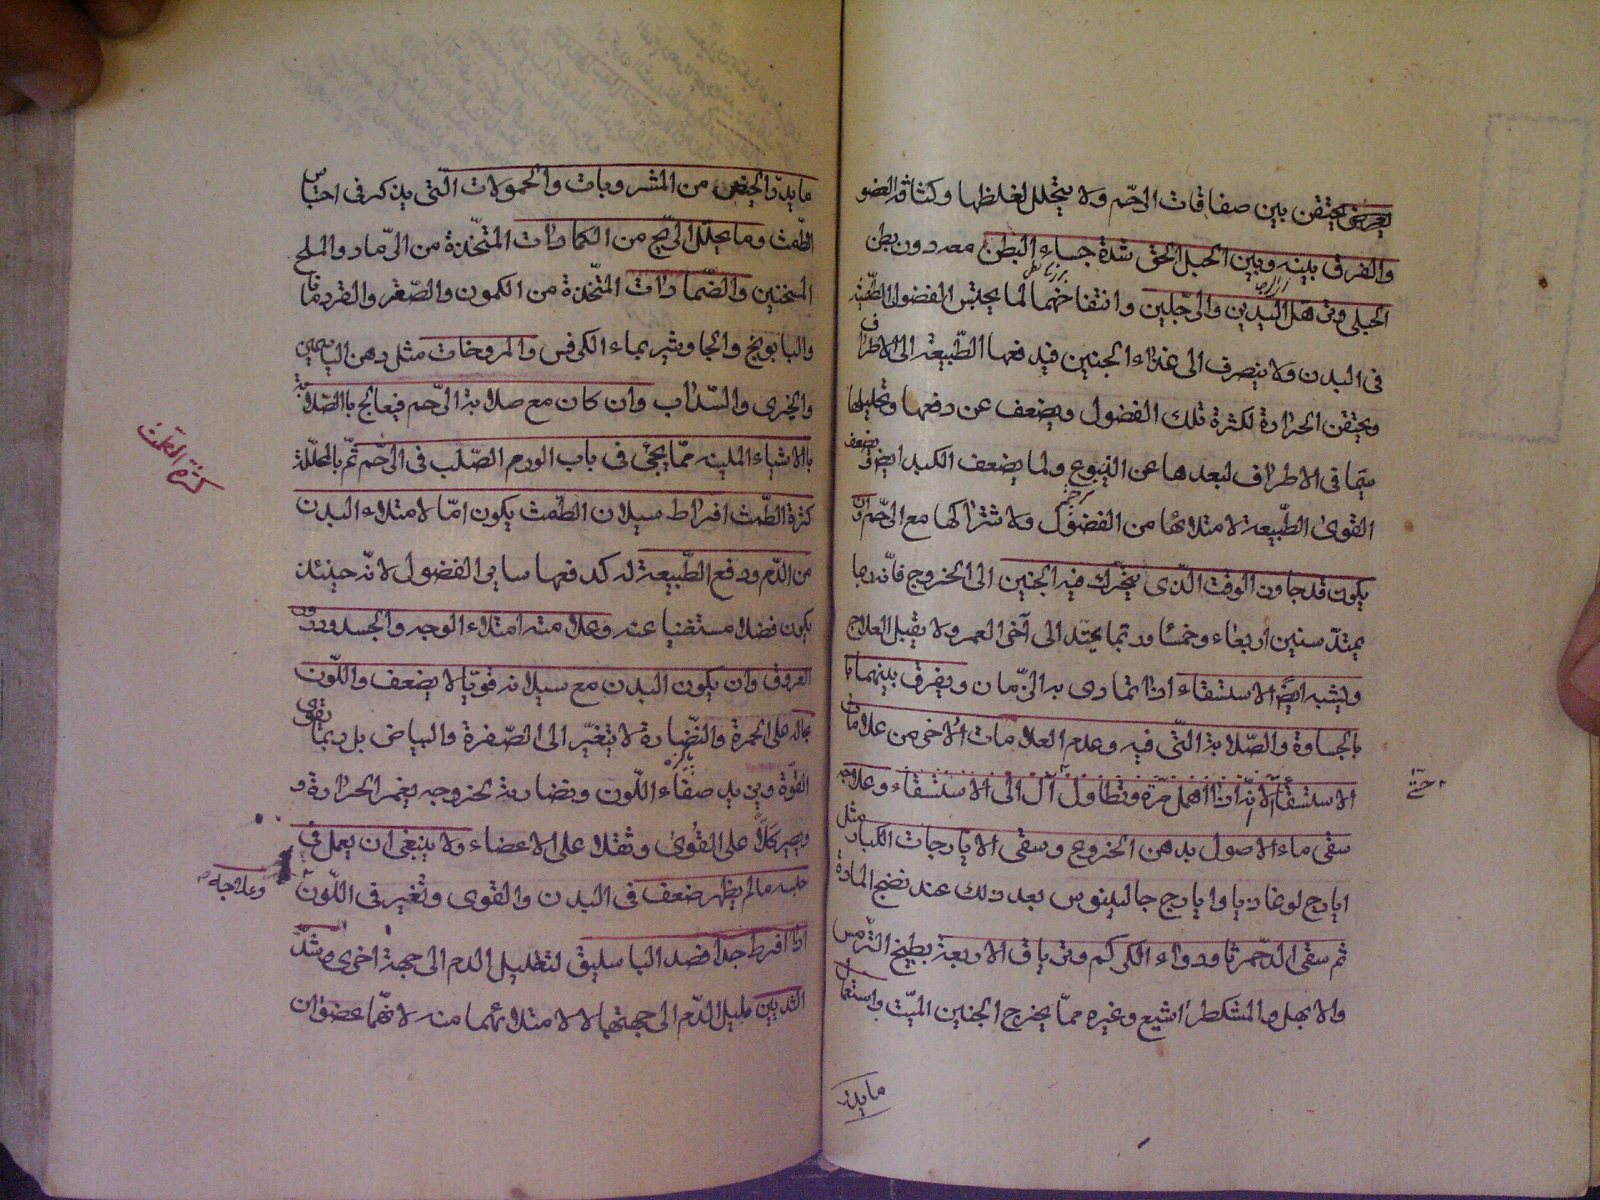 يعرض يحتقن بين صفاقات الرّحم ولا يتحلل لغلظها وكثافة العضو
والفرق بينه وبين الحبل الحق شدة جساء البطن معه دون بطن
الحبلى وترهل اليدين والرّجلين وانتفاخهما لما يحتبس الفضول الطّمثية
فى البدن ولا ينصرف الى غذاء الجنين فيدفعها الطّبيعة الى الاطراف
ويحتقن الحرارة لكثرة تلك الفضول ويضعف عن دفعها وتحليلها
سيّما فى الاطراف لبعدها عن الينبوع ولما يضعف الكبد ايضا ويضعف
القوى الطّبيعة لامتلائها من الفضول ولاشتراكها مع الرّحم وان
يكون قد جاوز الوقت الّذى يتحرّك فيه الجنين الى الخروج فانّه ربما
يمتدّ سنين اربعاء وخمسا وربّما يمتد الى آخر العمر ولا يقبل العلاج
ويشبه ايضا الاستسقاء اذا تمادى به الزّمان ويفرق بينهما
بالجساوة والصّلابة الّتى فيه وعدم العلامات الاخر من علامات
الاستسقاء لانّه اذا اهمل مرّة وتطاول آل الى الاستسقاء وعلاجه
سقى ماء الاصول بدهن الخروع وسقى الايارجات الكبار مثل
ايارج لوغاذيا وايارج جالينوس بعد ذلك عند نضج المادة
ثم سقى الدّحمرثا ودواء الكركم وترياق الاربعة بطبيخ التّرمس
والابهل والمشكطرا مشيع وغيره ممّا يخرج الجنين الميّت واستعمال
ما يدر
ما يدرّ الحيض من المشروبات والحمولات الّتى يذكر فى احتباس
الطّمث وما يحلّل الرّيح من الكمادات المتخّذة من الرّماد والملح
المسخنين والضّمادات المتّخذة من الكمون والصّعتر والقردمانا
والبابونج والجاوشير بماء الكرفس والمروخات مثل دهن الياسمين
والخيرى والسّذاب وان كان مع صلابة الرّحم فيعالج باالصّلابة
باالاشياء الملينه ممّا يجئ فى باب الورم الصّلب فى الرّحم ثمّ بالمحلّلة
كثرة الطّمث
كثرة الطّمث افراط سيلان الطّمث يكون امّا لامتلاء البدن
من الدّم ودفع الطّبيعة له كدفعها سائر الفضول لانّه حينئذ
يكون فضلا مستغنيا عنه وعلامته امتلاء الوجه والجسد ودرور
العروق وان يكون البدن مع سيلانه قويّا لا يضعف واللّون
بحاله على الحمرة والنّضارة لا يتغيّر الى الصّفرة والبياض بل ربّما تقوى
القوّة ويزيد صفاء اللّون ونضارته لخروجه يغمر الحرارة و
ويصير كلّا على القوى وثقلا على الاعضاء ولا ينبغى ان يعمل فى
حبسه مالم يظهر ضعف فى البدن والقوى وتغير فى اللّون
وعلاجه
اذا افرط جدا فصد الباسليق لتقليل الدم الى جهة اخرى وشدّ
الثديين لميل الدّم الى جهتها لا لامتلائهما منه لانهّما عضوان